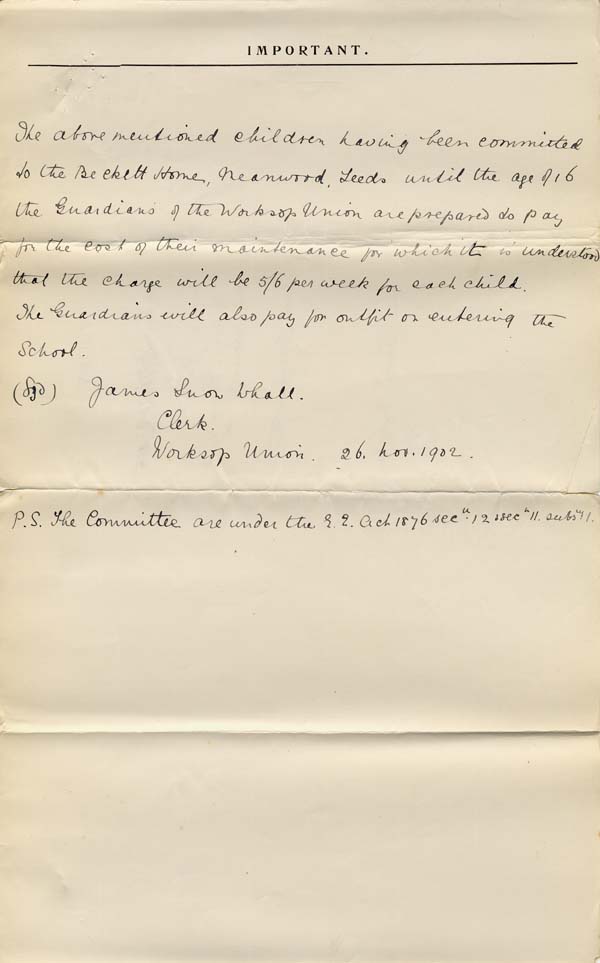 IMPORTANT.
The above mentioned children having been committed
to the Beckett Home, Meanwood, Leeds until the age of 16
the Guardians of the Worksop Union are prepared to pay
for the cost of their maintenance for which it is understood
that the charge will be 5/6 per week for each child.
The Guardians will also pay for outfit on entering the
School.
(Sgd) James Snow Whall.
Clerk.
Worksop Union. 26. Nov. 1902.
P.S. The Committee are under the E. E. Act 1876 secn. 12 secn 11. subsn 1.